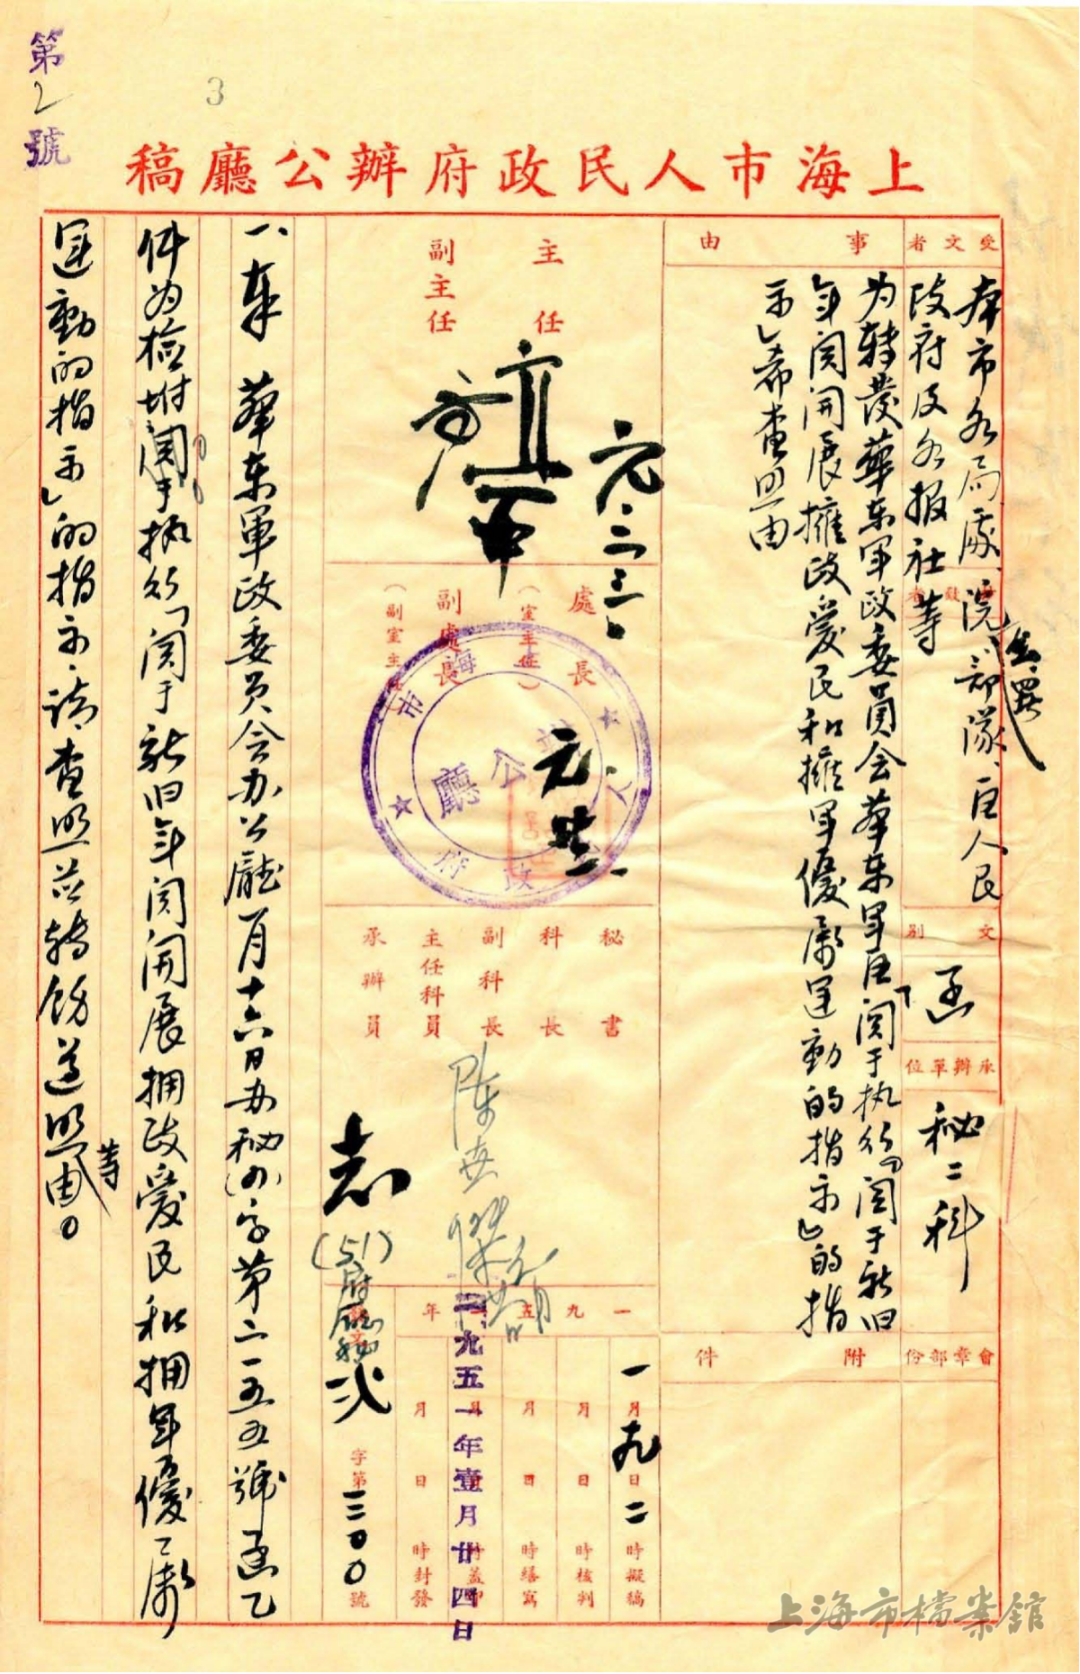 第2號
3
上海市人民政府辦公廳稿
受文者
本市各局處、院、部隊、区人民
政府及各报社等
事由
为转发華东军政委員会華东军区「関于执行「関于新旧
年関開展擁政愛民和擁军優屬运動的指示」的指
示」希查照由
文別
函
承辦單位
秘二科
會章部份
附件
主任
副主任
元.二三
處長
(室主任)
副處長
(副室主任)
上海市人民政府
辦公廳
秘書
科長
副科長
主任科員
承辦員
志
一九五一年
一月九日二時擬稿
月日時核判
月日時繕寫
一九五一年壹月廿四日
月日時封發
(51)府廳秘二
字第一三00號
一、奉 華东軍政委员会办公廳一月十六日办秘(办)字第二一五五號函乙
件为檢附関于执行「関于新旧年関開展拥政爱民和拥军優屬
运動的指示」的指示,請查照並轉飭遵照等由。
上海市檔案館